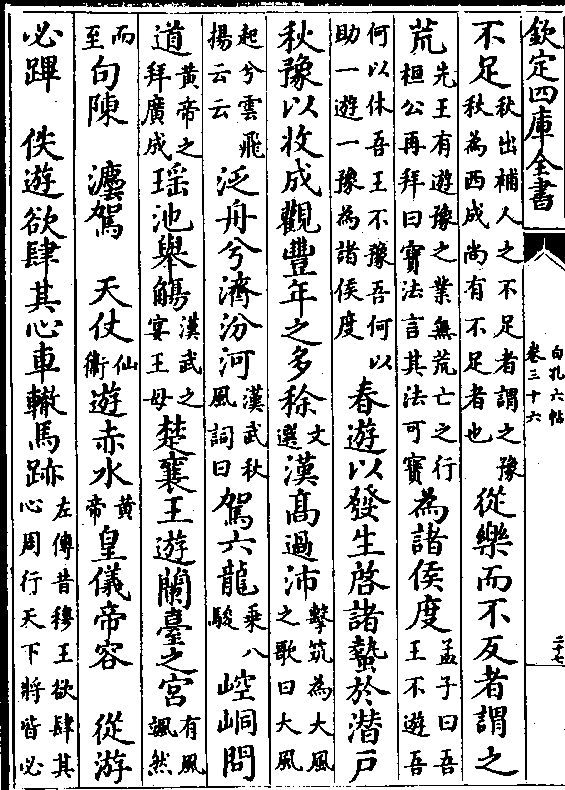 欽定四庫全書
白孔六帖
卷三十六
二十七
不足秋出補人之不足者謂之豫秋為西成尚有不足者也從樂而不反者謂之
荒先王有遊豫之業無荒亡之行桓公再拜曰寳法言其法可寳為諸侯度孟子曰吾王不遊吾
何以休吾王不豫吾何以助一遊一豫為諸侯度春遊以發生啓諸蟄於潜戸
秋豫以收成觀豐年之多稌文選漢髙過沛擊筑為大風之歌曰大風
起兮雲飛揚云云泛舟兮濟汾河漢武秋風詞曰駕六龍乗八駿崆峒問
道黄帝之拜廣成瑶池舉觴漢武之宴王母楚襄王遊闌臺之宫有風颯然
而至句陳瀍駕天仗仙衞遊赤水黄帝皇儀帝容從游
必蹕佚遊欲肆其心車轍馬跡左傳昔穆王欲肆其心周行天下將皆必